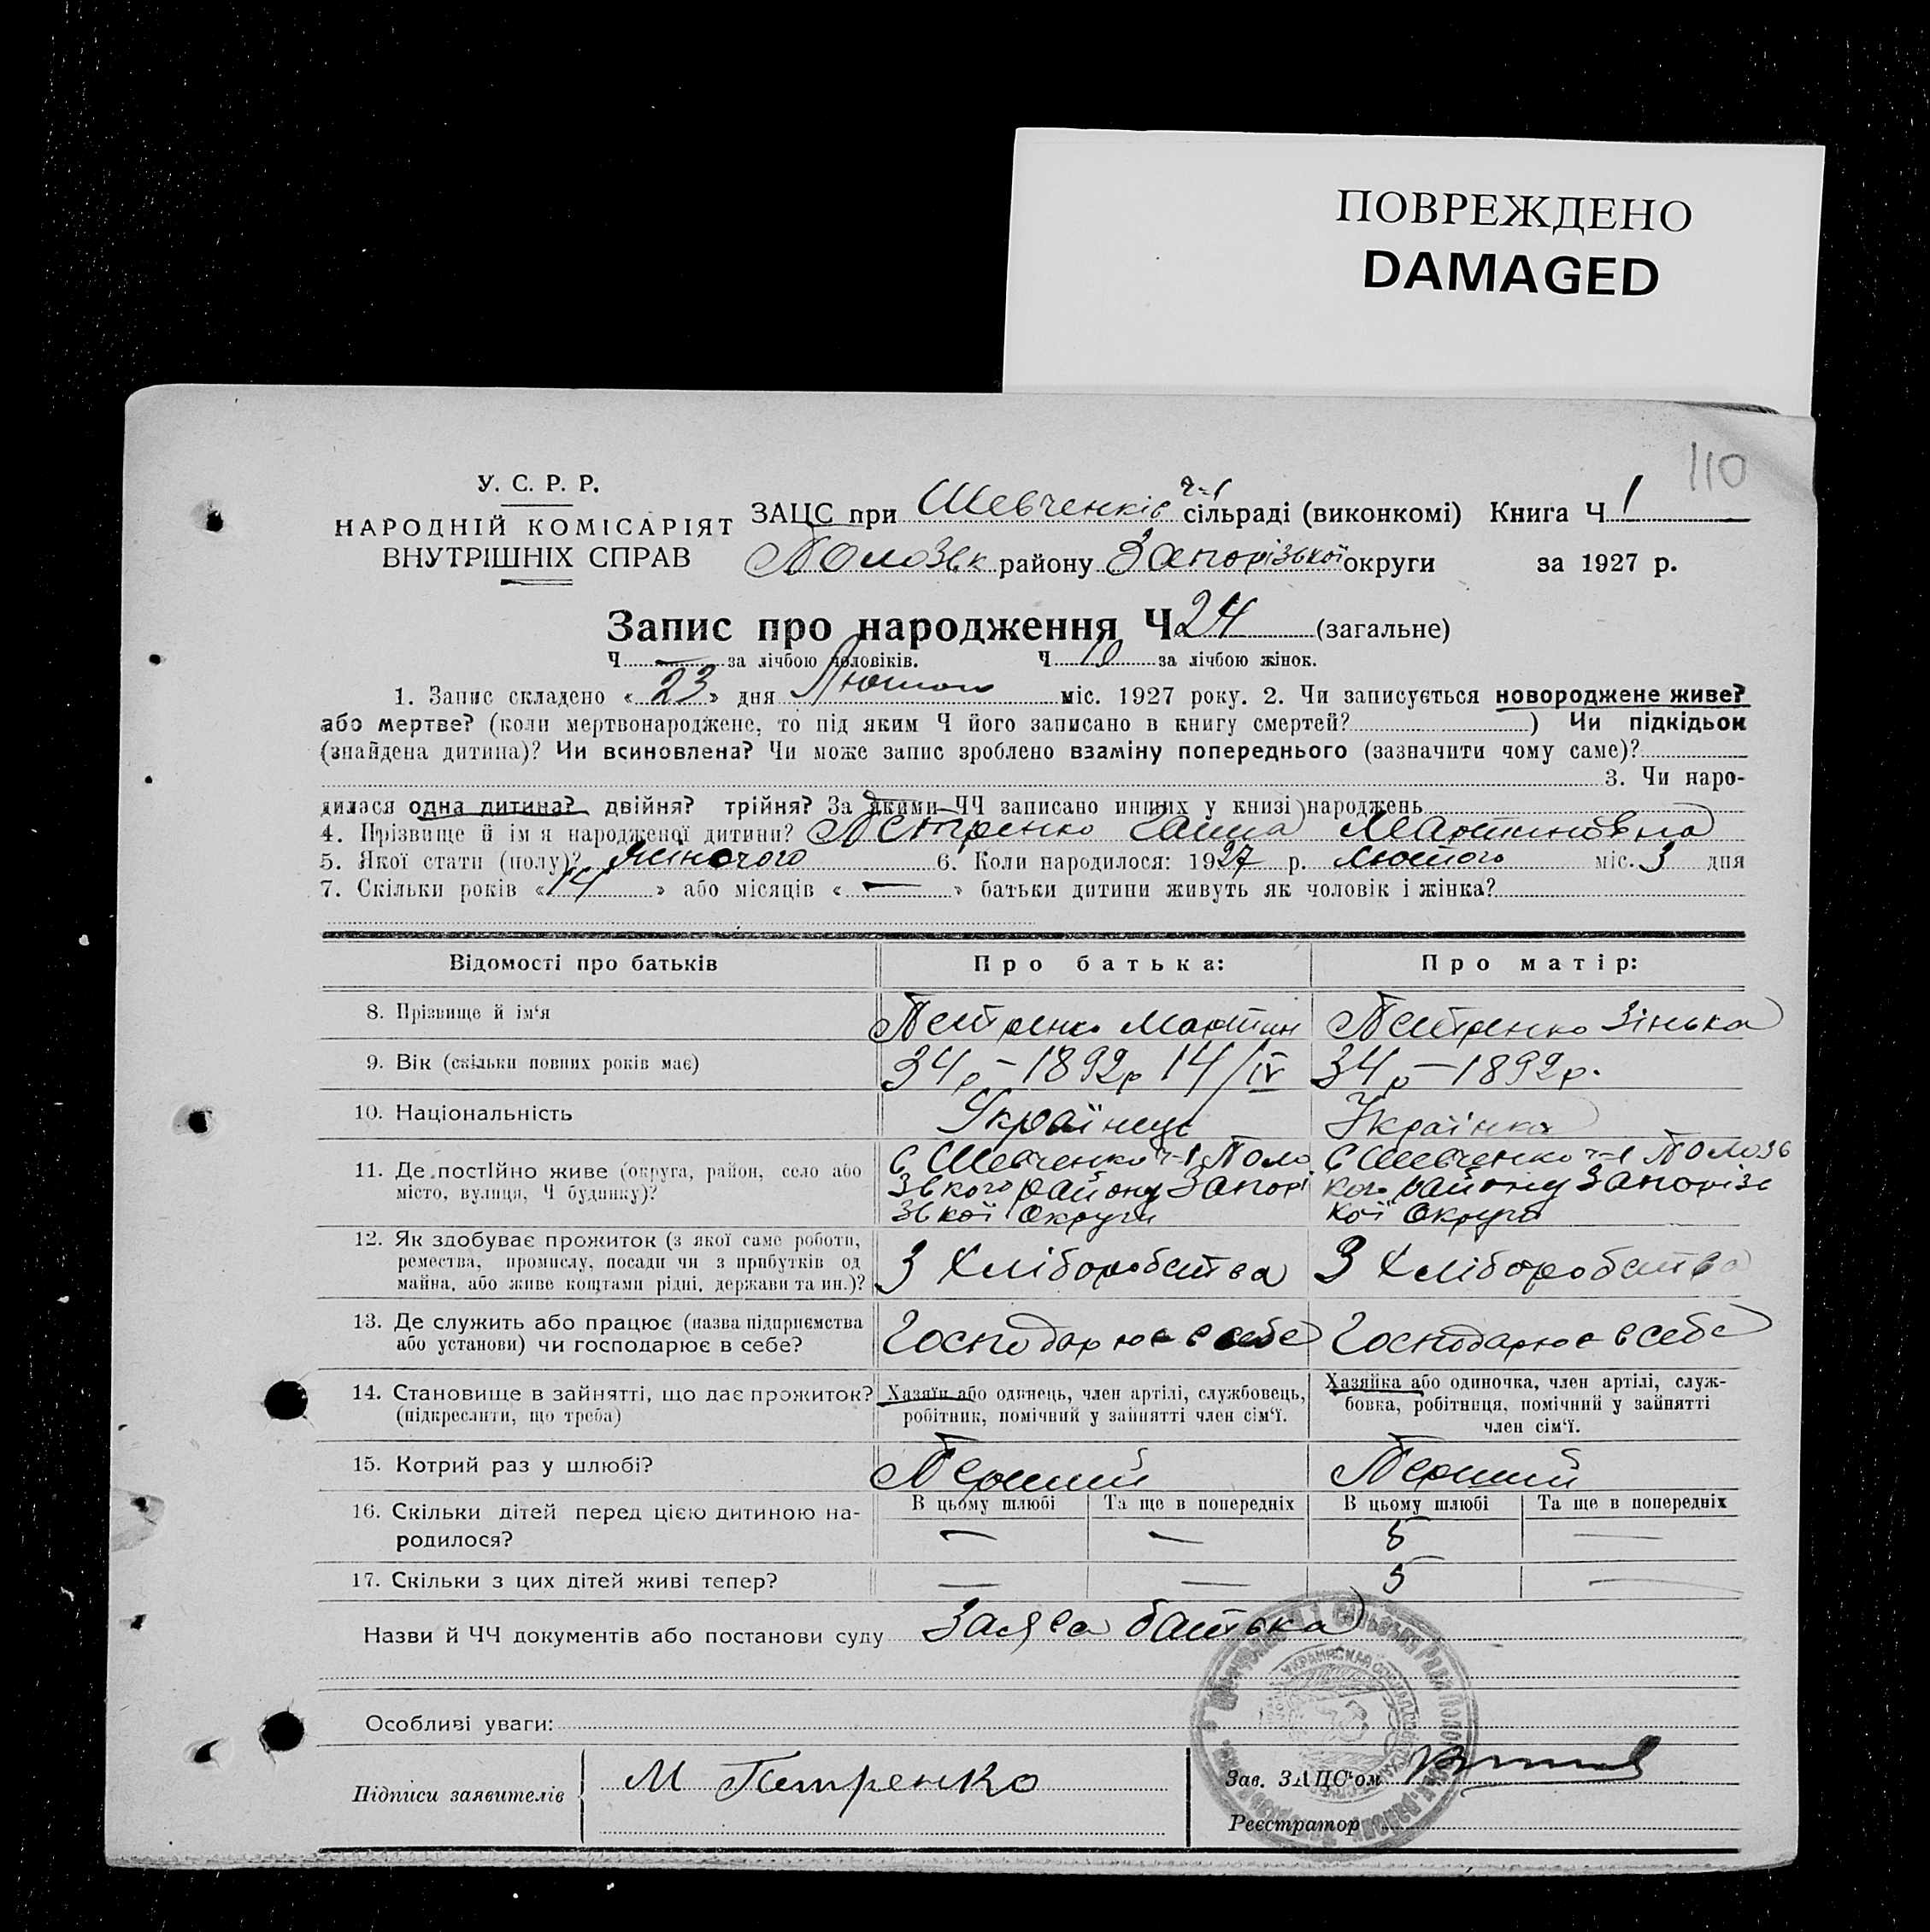 ПОВРЕЖДЕНО
DAMAGED
110
У. С. Р. Р.
НАРОДНІЙ КОМІСАРІЯТ
ВНУТРІШНІХ СПРАВ
ЗАЦС при Шевченків ч-1 сільраді (виконкомі) Книга Ч 1
Полозьк району Запорізької округи за 1927 р.
Запис про народження Ч 24 (загальне)
Ч — за лічбою чоловіків. Ч 10 за лічбою жінок.
1. Запис складено « 23 » дня Лютого міс. 1927 року. 2. Чи записується новороджене живе?
або мертве? (коли мертвонароджене, то під яким Ч його записано в книгу смертей? ) Чи підкідьок
(знайдена дитина)? Чи всиновлена? Чи може запис зроблено взаміну попереднього (зазначити чому саме)?
3. Чи наро-
дилася одна дитина? двійня? трійня? За якими ЧЧ записано инших у книзі народжень
4. Прізвище й ім я народженої дитини? Петренко Ганна Мартиновна
5. Якої стати (полу)? жіночого 6. Коли народилося: 1927 р. лютого міс. 3 дня
7. Скільки років « 14 » або місяців « — » батьки дитини живуть як чоловік і жінка?
Відомості про батьків Про батька: Про матір:
8. Прізвище й ім'я Петренко Мартин Петренко Зінька
9. Вік (скільки повних років має) 34 р – 1892р 14/IV 34 р – 1892р.
10. Національність Українець Українка
11. Де постійно живе (округа, район, село або
місто, вулиця, Ч будинку)?
С Шевченко ч-1 Поло
зького району Запорі
зької Округи
С Шевченко ч-1 Полозь
кого району Запорізь
кої Округи
12. Як здобуває прожиток (з якої саме роботи,
ремества, промислу, посади чи з прибутків од
майна, або живе коштами рідні, держави та ин.)?
З Хліборобства З Хліборобства
13. Де служить або працює (назва підприємства
або установи) чи господарює в себе?
Господарює в себе Господарює в себе
14. Становище в зайнятті, що дає прожиток?
(підкреслити, що треба)
Хазяїн або одинець, член артілі, службовець,
робітник, помічний у зайнятті член сім'ї.
Хазяйка або одиночка, член артілі, служ-
бовка, робітниця, помічний у зайнятті
член сім'ї.
15. Котрий раз у шлюбі? Перший Перший
16. Скільки дітей перед цією дитиною на-
родилося?
В цьому шлюбі Та ще в попередніх В цьому шлюбі Та ще в попередніх
— — 5 —
17. Скільки з цих дітей живі тепер? — — 5 —
Назви й ЧЧ документів або постанови суду Заява батька
Особливі уваги:
Підписи заявителів М Петренко
Зав. ЗАЦС'ом
Реєстратор